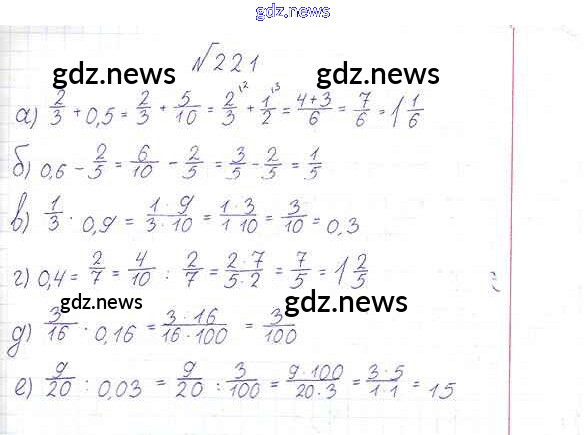 gdz.news
№221
gdz.news gdz.news
а) 2/3 + 0,5 = 2/3 + 5/10 = 2/3 + 1/2 = (4+3)/6 = 7/6 = 1 1/6
б) 0,6 - 2/5 = 6/10 - 2/5 = 3/5 - 2/5 = 1/5
в) 1/3 · 0,9 = (1·9)/(3·10) = (1·3)/(1·10) = 3/10 = 0,3
gdz.news gdz.news
г) 0,4 = 2/7 = 4/10 : 2/7 = (2·7)/(5·2) = 7/5 = 1 2/5
gdz.news gdz.news
д) 3/16 · 0,16 = (3·16)/(16·100) = 3/100
е) 9/20 : 0,03 = 9/20 : 3/100 = (9·100)/(20·3) = (3·5)/(1·1) = 15
gdz.news